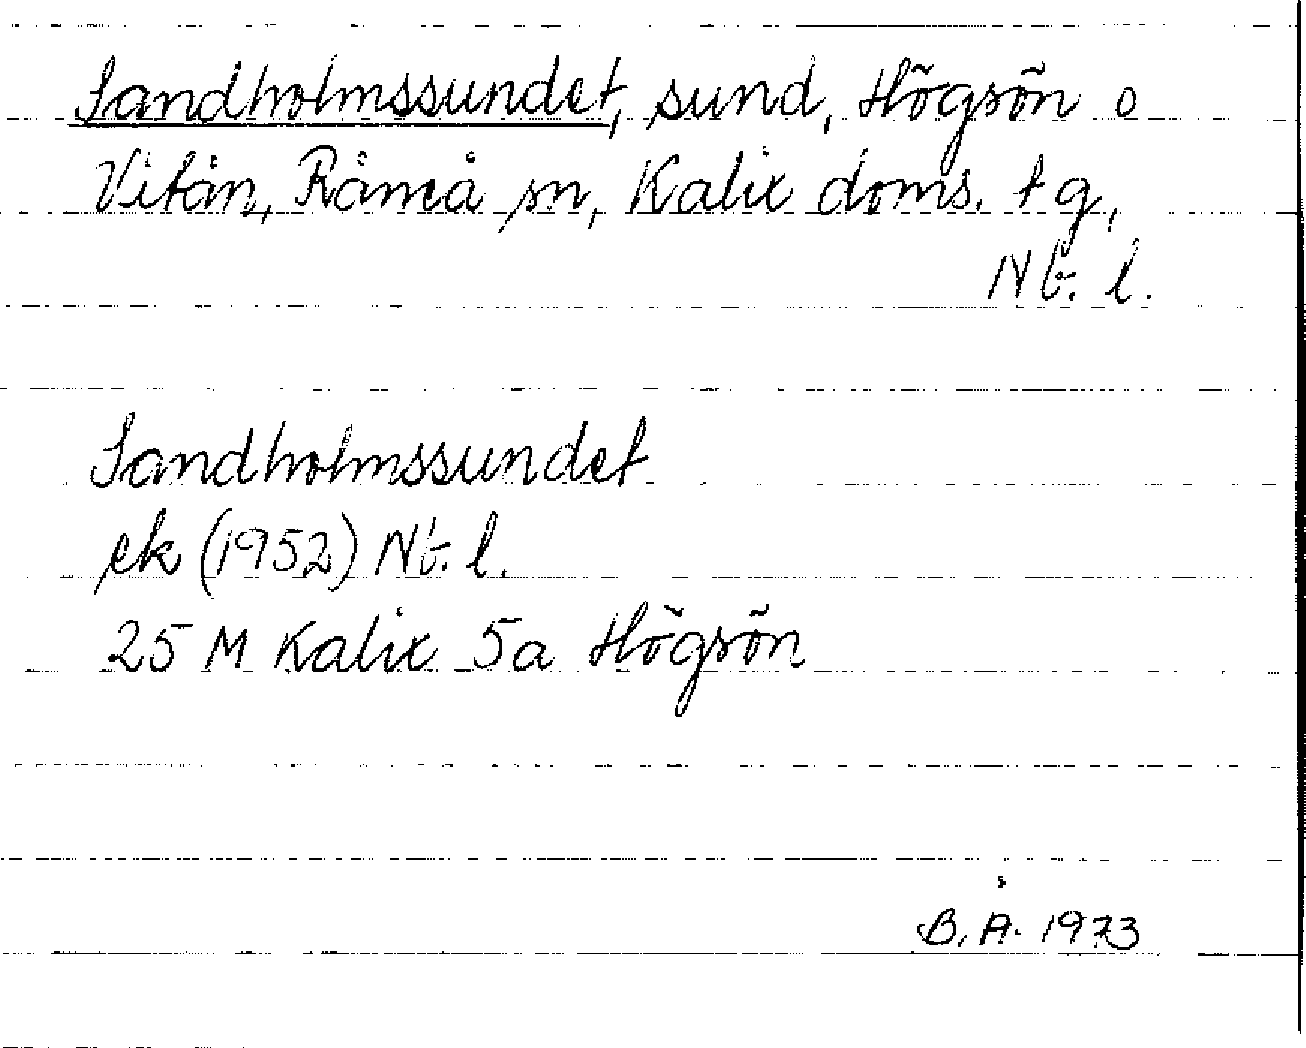 Sandholmssundet, sund, Högsön o
Vitån, Råneå sn, Kalix doms. tg,
Nb. l.
Sandholmssundet
ek (1952) Nb. l.
25 M Kalix 5a Högsön
B. Å. 1973